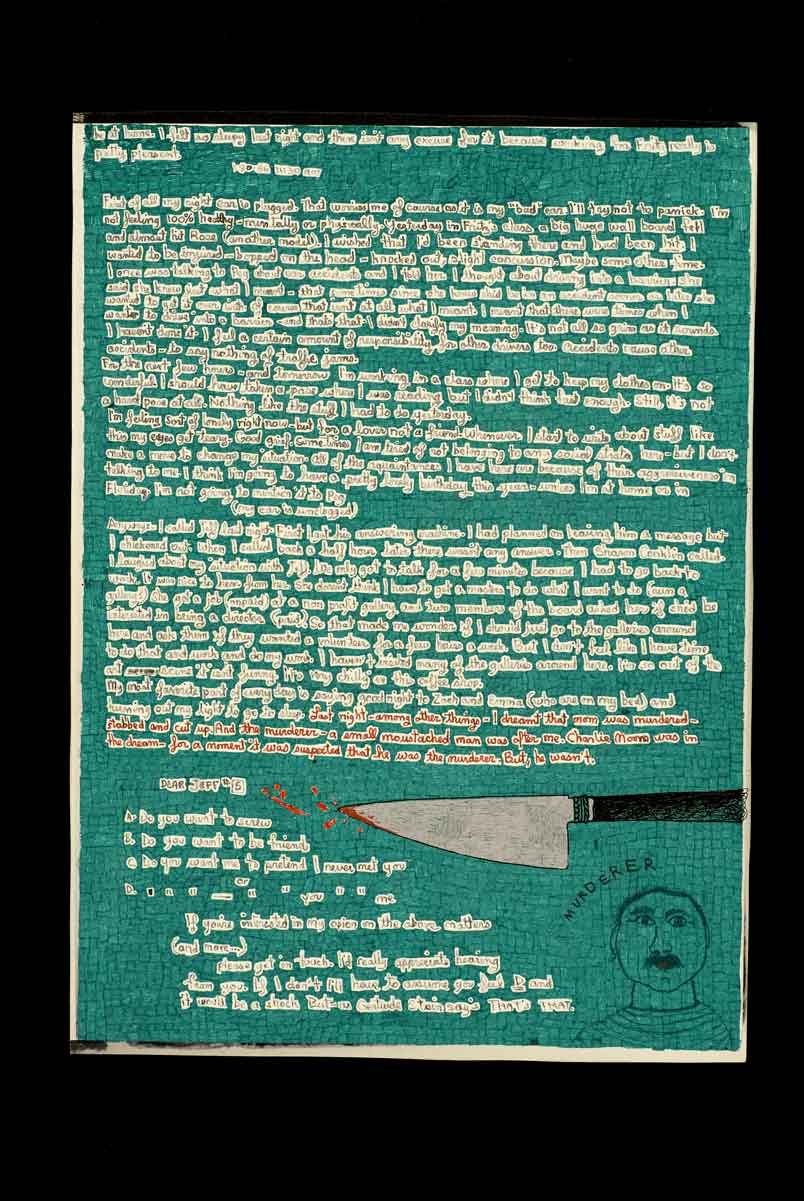 be at home. I felt so sleepy last night and there isn't any excuse for it because working for Fritz really is
pretty pleasent.
1:30 am
First of all my right ear is plugged. That worries me of course as it is my "bad" ear. I'll try not to panick. I'm
not feeling 100% healthy - mentally or physically. Yesterday in Fritz's class a big huge wall board fell
and almost hit Rose (another model). I wished that I'd been standing there and had been hit. I
wanted to be injured - bopped on the head - knocked out, slight concussion. Maybe some other time.
I once was talking to Peg about car accidents and I told her I thought about driving into a barrier. She
said she knew just what I meant - that sometimes since she knew she'd be in an accident sooner or later she
wanted to get it over with. Of course that isn't at all what I meant. I meant that there were times when I
wanted to drive into a barrier - and that's that. I didn't clarify my meaning. It's not all so grim as it sounds.
I haven't done it. I feel a certain amount of responsibility for other drivers too. Accidents cause other
accidents - to say nothing of traffic jams.
For the next few hours - and tomorrow I'm working in a class where I get to keep my clothes on. It's so
wonderful. I should have taken a pose where I was reading but I didn't think fast enough. Still it's not
a hard pose at all. Nothing like the stuff I had to do yesterday.
I'm feeling sort of lonely right now - but for a lover not a friend. Whenever I start to write about stuff like
this my eyes get teary. Good grief. Sometimes I am tired of not belonging to any social strata here - but I don't
make a move to change my situation. All of the aquaintances I have here are because of their aggressiveness in
talking to me. I think I'm going to have a pretty lonely birthday this year - unless I'm at home or in
Findlay. I'm not going to mention it to Peg.
(my ear is unclogged)
Anyways I called Jeff last night. First I got his answering machine. I had planned on leaving him a message but
I chickened out. When I called back a half hour later there wasn't any answer. Then Sharon Conklin called.
I laughed about my situation with Jeff. We only got to talk for a few minutes because I had to go back to
work. It was nice to hear from her. She doesn't think I have to get a masters to do what I want to do (run a
gallery.) She got a job (unpaid) at a non profit gallery and two members of the board asked her if she'd be
interested in being a director (paid). So that made me wonder if I should just go to the galleries around
here and ask them if they wanted a volunteer for a few hours a week. But I don't feel like I have time
to do that and work and do my work. I haven't visited many of the galleries around here. I'm so out of the
art scene it isn't funny. It's very chilly in this coffee shop.
My most favorite part of every day is saying good night to Zach and Emma (who are on my bed) and
turning out my light to go to sleep. Last night - among other things - I dreamt that mom was murdered -
stabbed and cut up. And the murderer - a small moustached man was after me. Charlie Moone was in
the dream - for a moment it was suspected that he was the murderer. But, he wasn't.
DEAR JEFF
A. Do you want to screw
B. Do you want to be friends
C. Do you want me to pretend I never met you
or
D. " " " — " " you " " me
If you're interested in my opion on the above matters
(and more...)
please get in touch. I'd really appreciate hearing
from you. If I don't I'll have to assume you feel D and
it would be a shock. But - as Gertrude Stein says THAT'S THAT.
MURDERER